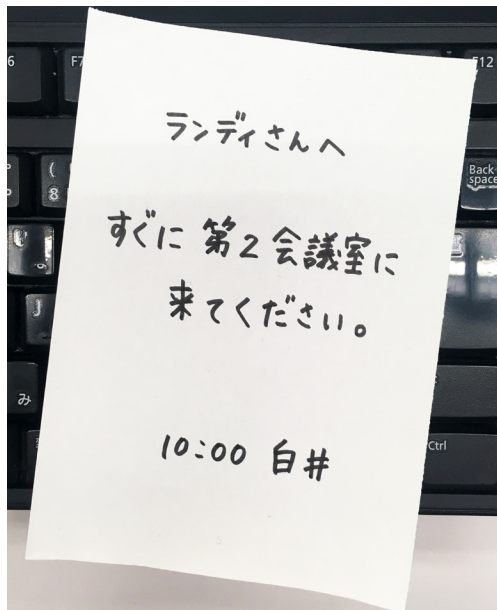 ランディさんへ
すぐに 第2会議室に
来てください。
10:00 白井
6
F7
F12
(
8
Back
space
J
み
Ctrl